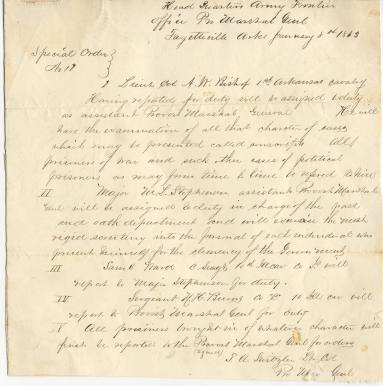 Head Quarters Army Frontier
Office Pro Marshal Genl
Fayetteville Arks January 3rd 1863
Special Order
No 19
I Lieut Col A. W. Bishop 1st Arkansas cavalry
Having reported for duty will be assigned to duty
as assistant Provost Marshal General He will
have the examination of all that character of cases
which may be presented called All
prisoners of war and such other cases of political
prisoners as may from time to time be refered to him
II Major W. L. Stephenson assistant Provost Marshal
Genl will be assigned to duty in charge of the pass
and oath department and will exercise the most
rigid scrutiny into the of each individual who
present himself for the clemency of the Government
III Saml Ward C 10th Ill Cav will
report to Major Stephenson for duty.
IV Sergeant H. H. Burns Co 10 Ill cav will
report to Provost Marshal Genl for duty
V All prisoners brought in of whatever character will
first be reported to the Provost Marshal Genl for orders
signed
Lt Col
Pro Mar Genl